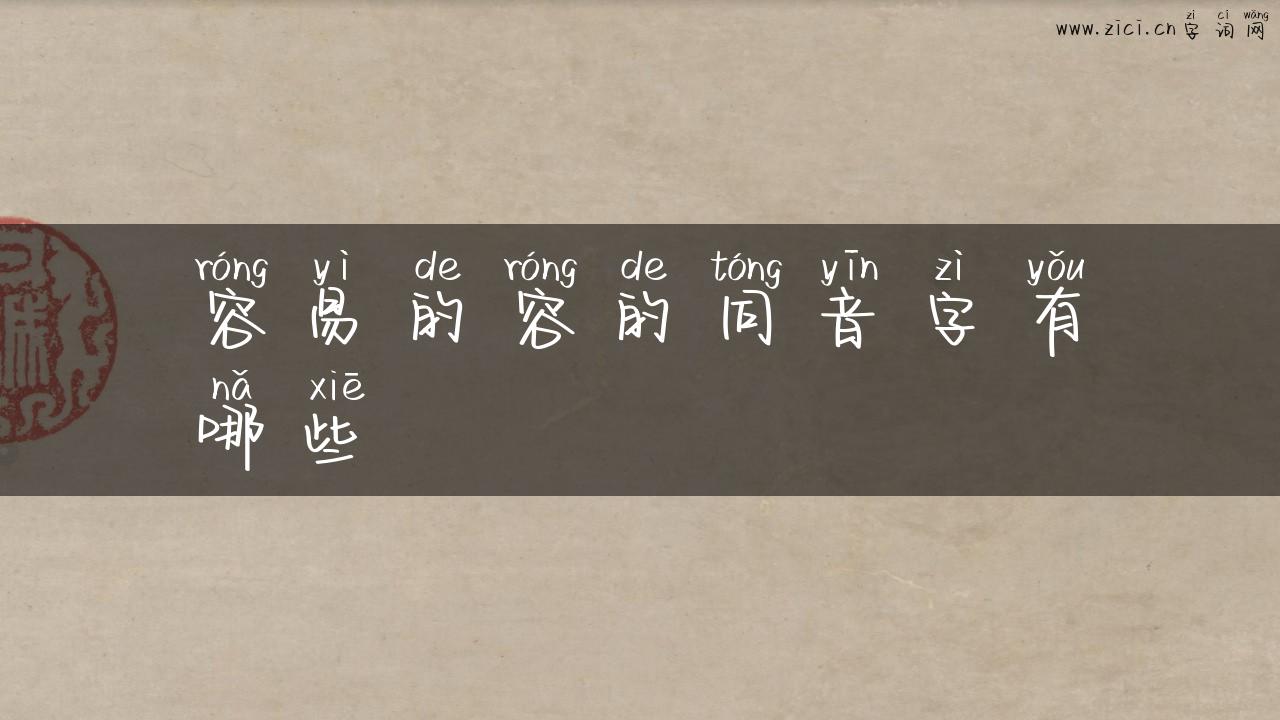 zì cí wǎng
www.zici.cn字词网
róng yì de róng de tóng yīn zì yǒu
容易的容的同音字有
nǎ xiē
哪些